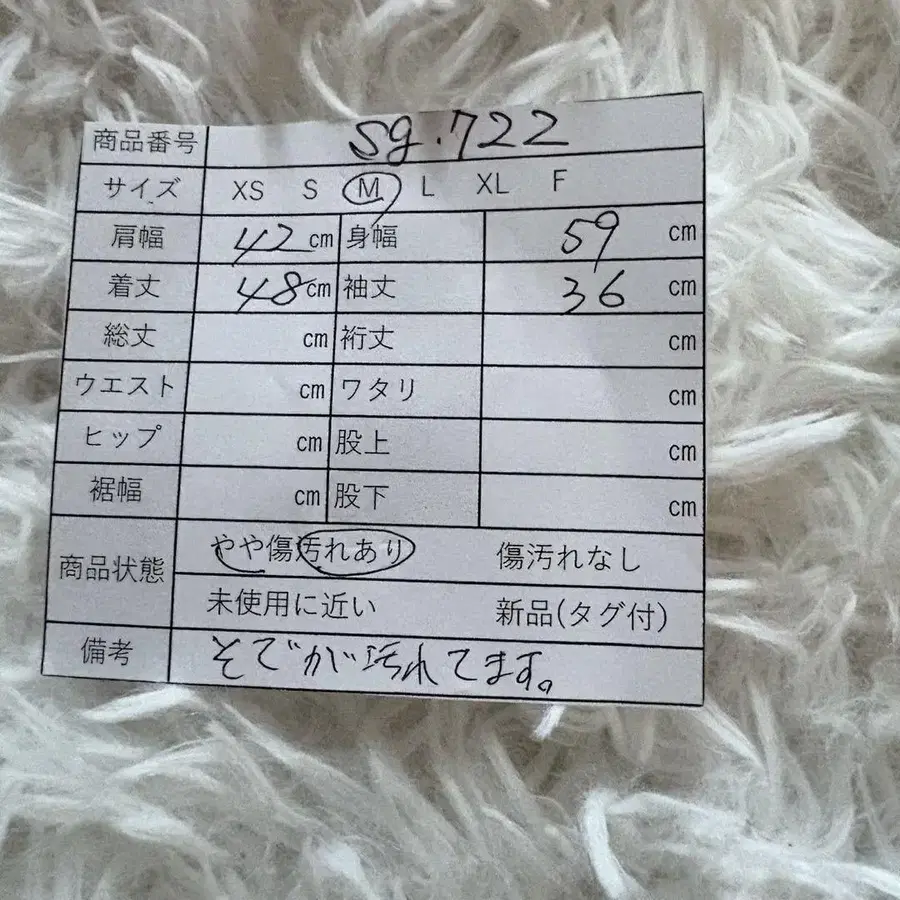 商品番号 sg.722
サイズ XS S M L XL F
肩幅 42 cm 身幅 59 cm
着丈 48 cm 袖丈 36 cm
総丈 cm 裄丈 cm
ウエスト cm ワタリ cm
ヒップ cm 股上 cm
裾幅 cm 股下 cm
商品状態 やや傷汚れあり 傷汚れなし
未使用に近い 新品(タグ付)
備考 そでが汚れてます。